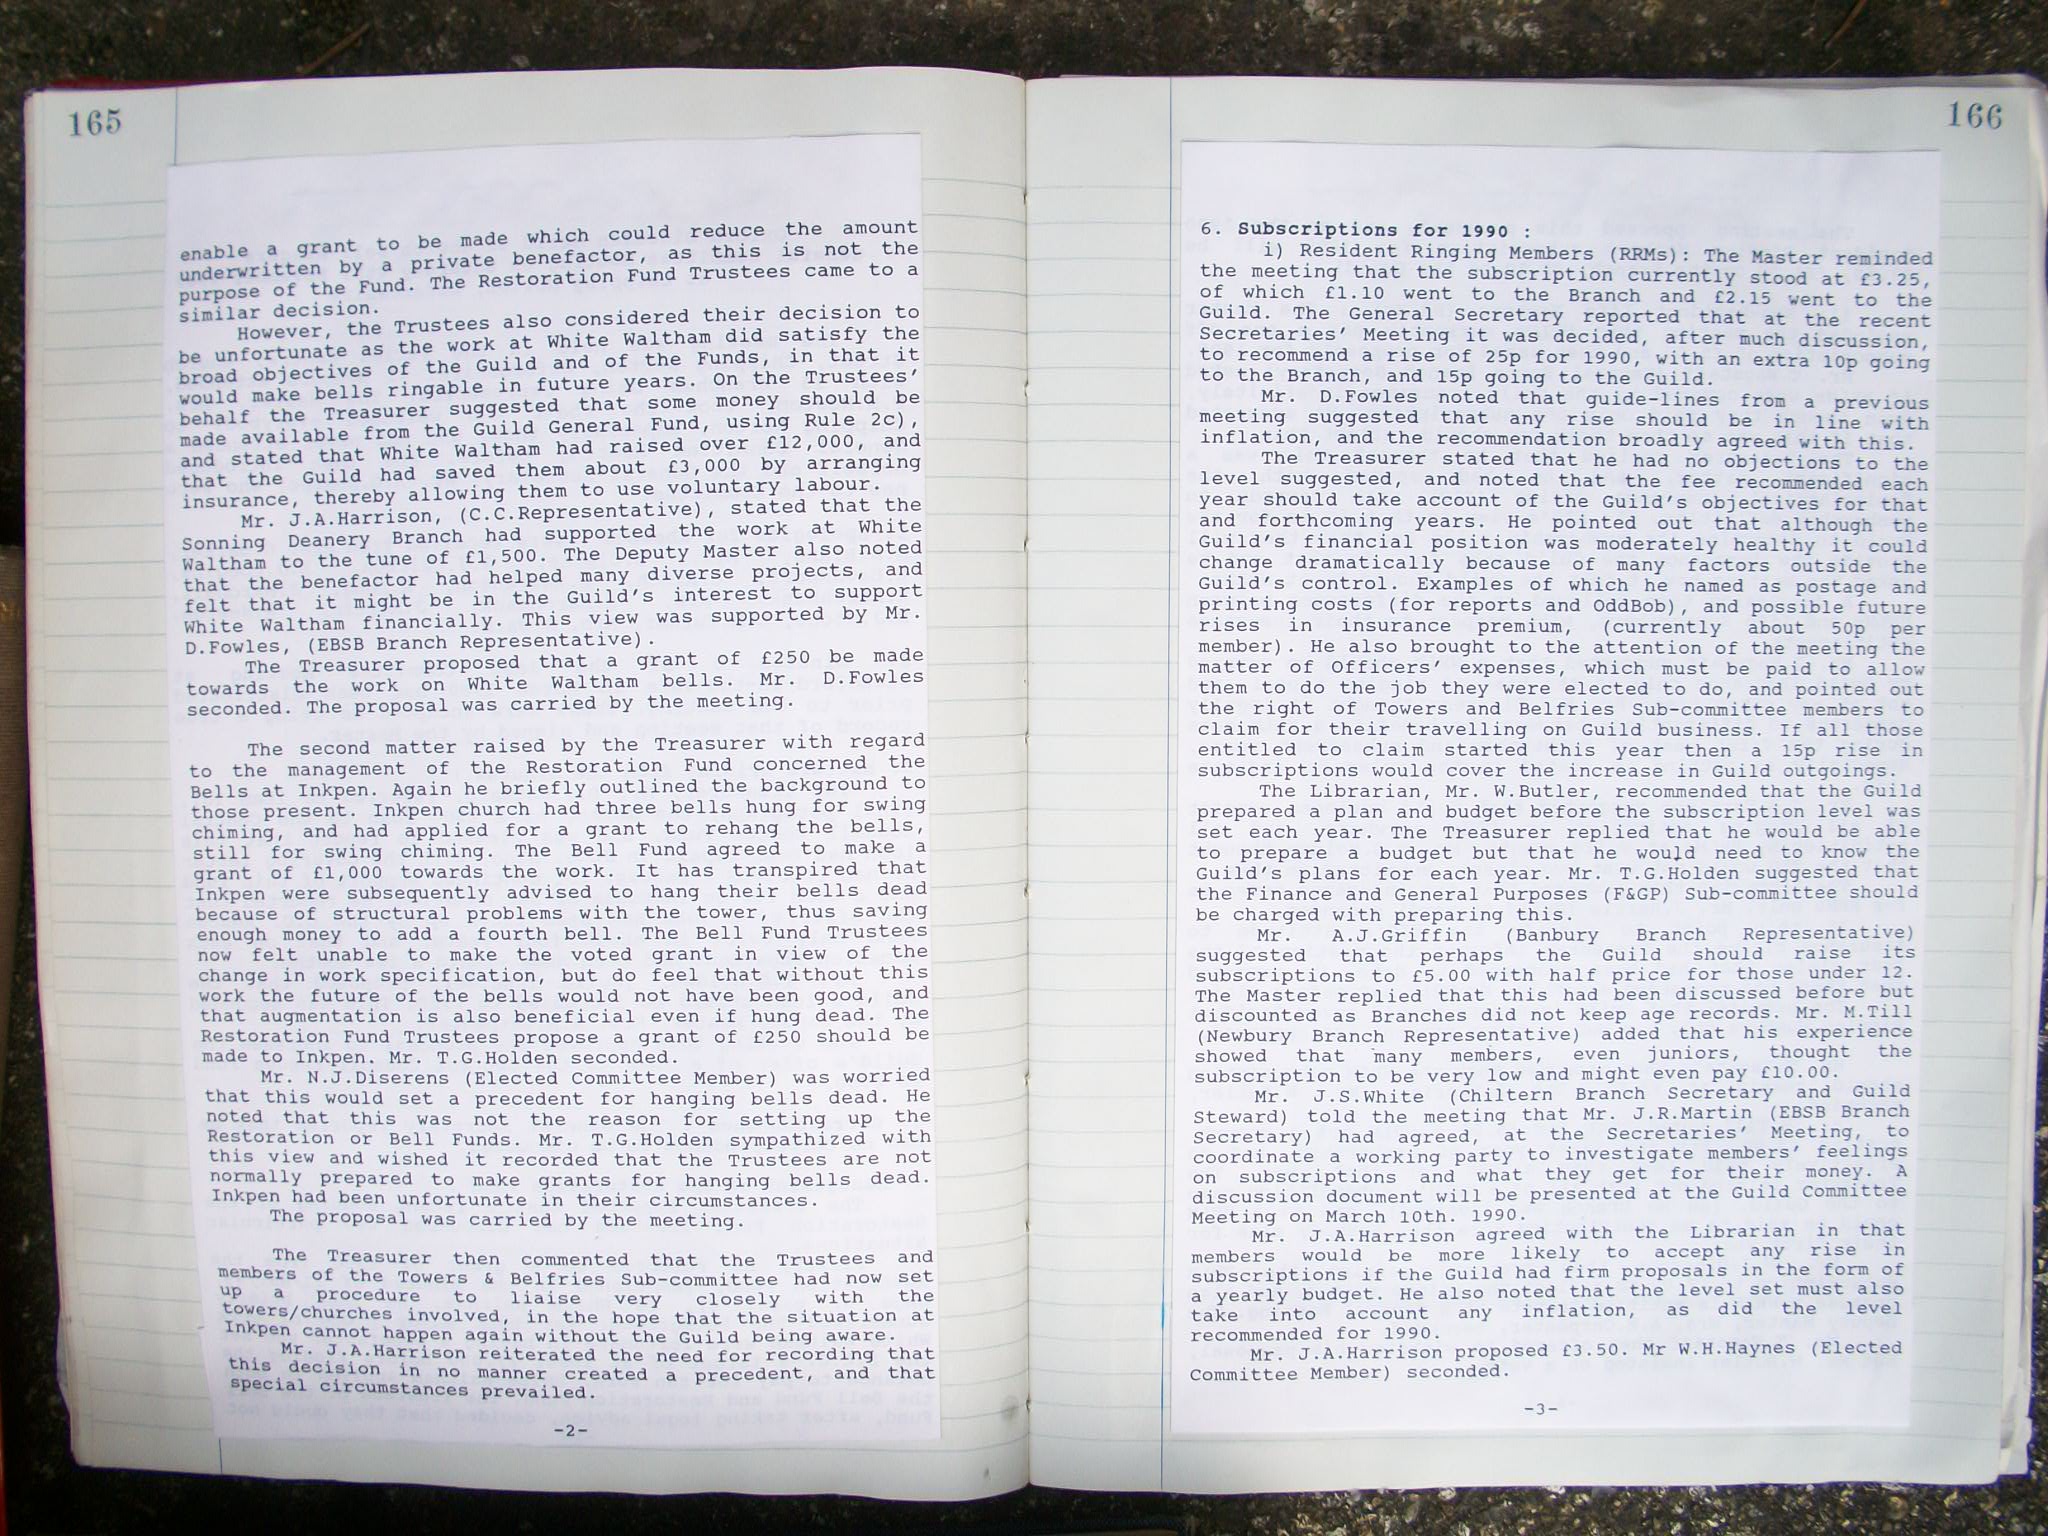 165
enable a grant to be made which could reduce the amount
underwritten by a private benefactor, as this is not the
purpose of the Fund. The Restoration Fund Trustees came to a
similar decision.
However, the Trustees also considered their decision to
be unfortunate as the work at White Waltham did satisfy the
broad objectives of the Guild and of the Funds, in that it
would make bells ringable in future years. On the Trustees'
behalf the Treasurer suggested that some money should be
made available from the Guild General Fund, using Rule 2c),
and stated that White Waltham had raised over £12,000, and
that the Guild had saved them about £3,000 by arranging
insurance, thereby allowing them to use voluntary labour.
Mr. J.A.Harrison, (C.C.Representative), stated that the
Sonning Deanery Branch had supported the work at White
Waltham to the tune of £1,500. The Deputy Master also noted
that the benefactor had helped many diverse projects, and
felt that it might be in the Guild's interest to support
White Waltham financially. This view was supported by Mr.
D.Fowles, (EBSB Branch Representative).
The Treasurer proposed that a grant of £250 be made
towards the work on White Waltham bells. Mr. D.Fowles
seconded. The proposal was carried by the meeting.
The second matter raised by the Treasurer with regard
to the management of the Restoration Fund concerned the
Bells at Inkpen. Again he briefly outlined the background to
those present. Inkpen church had three bells hung for swing
chiming, and had applied for a grant to rehang the bells,
still for swing chiming. The Bell Fund agreed to make a
grant of £1,000 towards the work. It has transpired that
Inkpen were subsequently advised to hang their bells dead
because of structural problems with the tower, thus saving
enough money to add a fourth bell. The Bell Fund Trustees
now felt unable to make the voted grant in view of the
change in work specification, but do feel that without this
work the future of the bells would not have been good, and
that augmentation is also beneficial even if hung dead. The
Restoration Fund Trustees propose a grant of £250 should be
made to Inkpen. Mr. T.G.Holden seconded.
Mr. N.J.Diserens (Elected Committee Member) was worried
that this would set a precedent for hanging bells dead. He
noted that this was not the reason for setting up the
Restoration or Bell Funds. Mr. T.G.Holden sympathized with
this view and wished it recorded that the Trustees are not
normally prepared to make grants for hanging bells dead.
Inkpen had been unfortunate in their circumstances.
The proposal was carried by the meeting.
The Treasurer then commented that the Trustees and
members of the Towers & Belfries Sub-committee had now set
up a procedure to liaise very closely with the
towers/churches involved, in the hope that the situation at
Inkpen cannot happen again without the Guild being aware.
Mr. J.A.Harrison reiterated the need for recording that
this decision in no manner created a precedent, and that
special circumstances prevailed.
-2-
166
6. Subscriptions for 1990 :
i) Resident Ringing Members (RRMs): The Master reminded
the meeting that the subscription currently stood at £3.25,
of which £1.10 went to the Branch and £2.15 went to the
Guild. The General Secretary reported that at the recent
Secretaries' Meeting it was decided, after much discussion,
to recommend a rise of 25p for 1990, with an extra 10p going
to the Branch, and 15p going to the Guild.
Mr. D.Fowles noted that guide-lines from a previous
meeting suggested that any rise should be in line with
inflation, and the recommendation broadly agreed with this.
The Treasurer stated that he had no objections to the
level suggested, and noted that the fee recommended each
year should take account of the Guild's objectives for that
and forthcoming years. He pointed out that although the
Guild's financial position was moderately healthy it could
change dramatically because of many factors outside the
Guild's control. Examples of which he named as postage and
printing costs (for reports and OddBob), and possible future
rises in insurance premium, (currently about 50p per
member). He also brought to the attention of the meeting the
matter of Officers' expenses, which must be paid to allow
them to do the job they were elected to do, and pointed out
the right of Towers and Belfries Sub-committee members to
claim for their travelling on Guild business. If all those
entitled to claim started this year then a 15p rise in
subscriptions would cover the increase in Guild outgoings.
The Librarian, Mr. W.Butler, recommended that the Guild
prepared a plan and budget before the subscription level was
set each year. The Treasurer replied that he would be able
to prepare a budget but that he would need to know the
Guild's plans for each year. Mr. T.G.Holden suggested that
the Finance and General Purposes (F&GP) Sub-committee should
be charged with preparing this.
Mr. A.J.Griffin (Banbury Branch Representative)
suggested that perhaps the Guild should raise its
subscriptions to £5.00 with half price for those under 12.
The Master replied that this had been discussed before but
discounted as Branches did not keep age records. Mr. M.Till
(Newbury Branch Representative) added that his experience
showed that many members, even juniors, thought the
subscription to be very low and might even pay £10.00.
Mr. J.S.White (Chiltern Branch Secretary and Guild
Steward) told the meeting that Mr. J.R.Martin (EBSB Branch
Secretary) had agreed, at the Secretaries' Meeting, to
coordinate a working party to investigate members' feelings
on subscriptions and what they get for their money. A
discussion document will be presented at the Guild Committee
Meeting on March 10th. 1990.
Mr. J.A.Harrison agreed with the Librarian in that
members would be more likely to accept any rise in
subscriptions if the Guild had firm proposals in the form of
a yearly budget. He also noted that the level set must also
take into account any inflation, as did the level
recommended for 1990.
Mr. J.A.Harrison proposed £3.50. Mr W.H.Haynes (Elected
Committee Member) seconded.
-3-